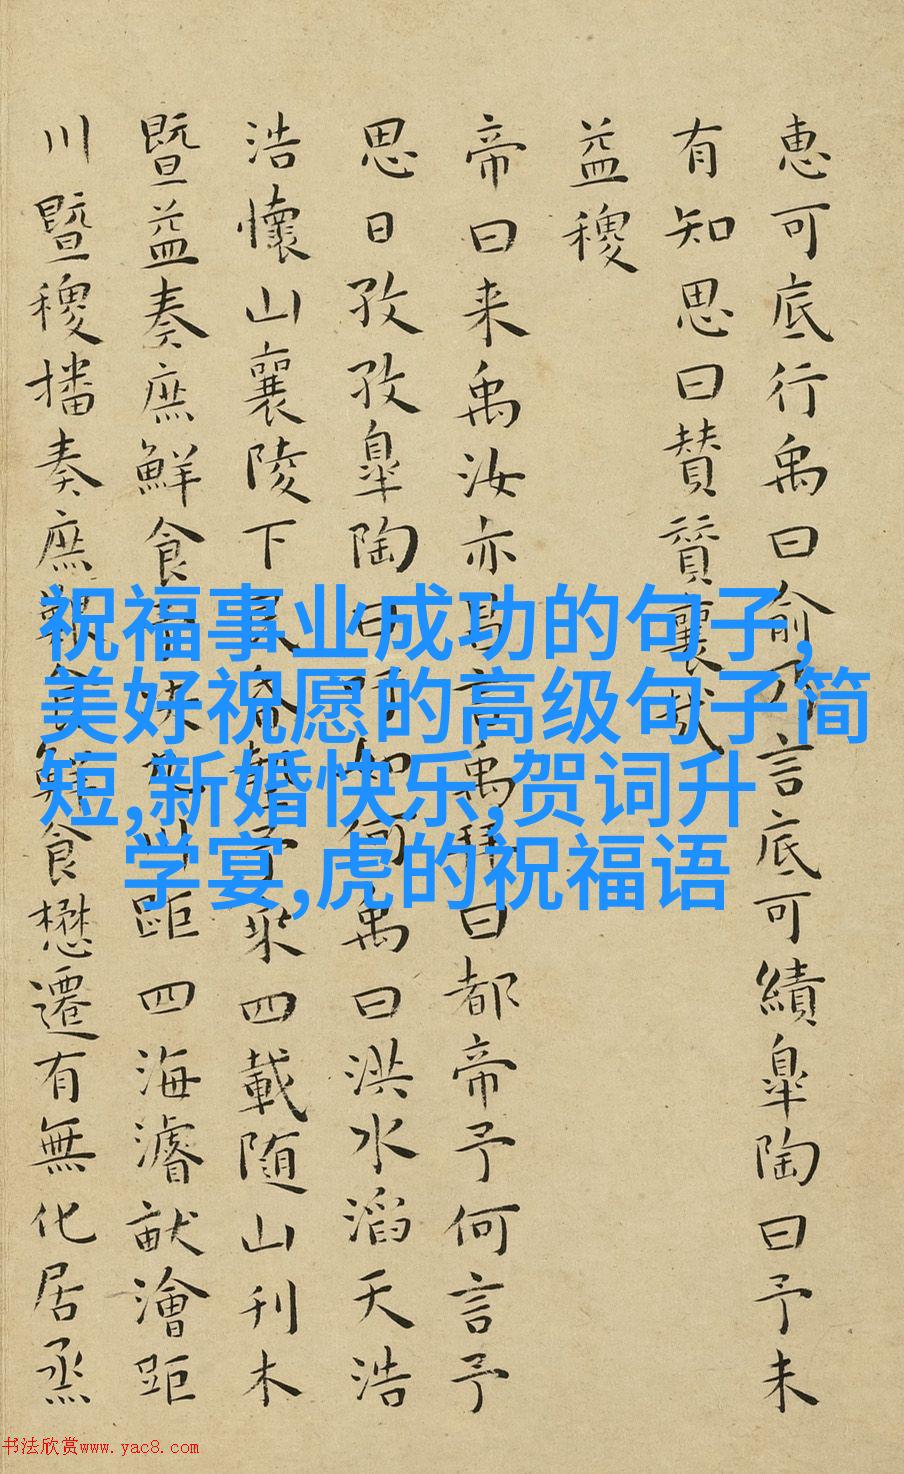 惠可底行禹曰俞乃言底可績臯陶曰予未
有知思曰賛賛襄哉
益稷
帝曰来禹汝亦昌言禹拜曰都帝予何言予
思日孜孜臯陶曰吁如何禹曰洪水滔天浩
浩懷山襄陵下民昏墊予乘四載随山刊木
暨益奏庶鮮食川距四海濬畎澮距
川暨稷播奏庶艱食鮮食懋遷有無化居烝
祝福事业成功的句子,
美好祝愿的高级句子简
短,新婚快乐,贺词升
学宴,虎的祝福语
书法欣赏www.yac8.com